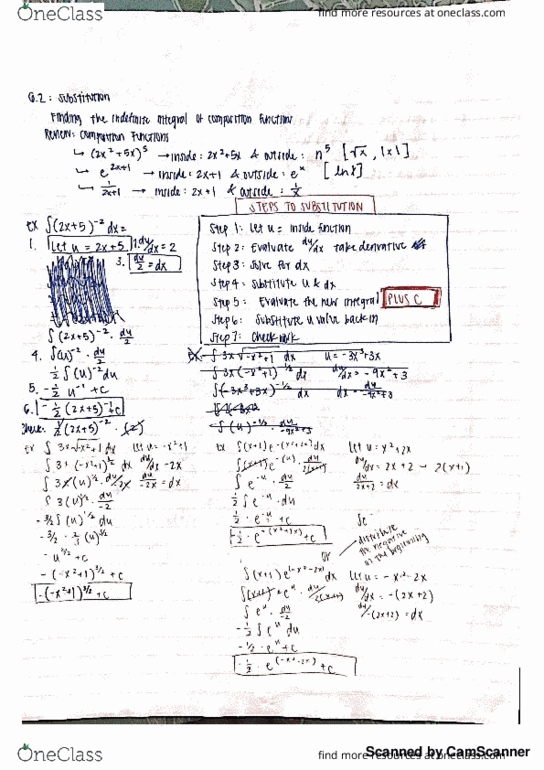 OneClass
find more resources at oneclass.com
6.2: Substitution
Finding the indefinite integral of composition functions
Review: Composition Functions
↳ (2x²+5x)⁵ → inside: 2x²+5x & outside: n⁵ [√x, |x|]
↳ e^(2x+1) → inside: 2x+1 & outside: eˣ [ln x]
↳ 1/(2x+1) → inside: 2x+1 & outside: 1/x
STEPS TO SUBSTITUTION
Step 1: Let u = inside function
Step 2: Evaluate du/dx take derivative
Step 3: Solve for dx
Step 4: Substitute u & dx
Step 5: Evaluate the new integral PLUS C
Step 6: Substitute u value back in
Step 7: Check work
ex ∫(2x+5)⁻² dx =
1. Let u = 2x+5 du/dx = 2
3. du/2 = dx
∫(2x+5)⁻² · du/2
4. ∫(u)⁻² · du/2
1/2 ∫(u)⁻² du
5. -1/2 u⁻¹ + c
6. -1/2 (2x+5)⁻¹ + c
Check: 1/2 (2x+5)⁻² · (2)
Ex ∫ 3x√-x²+1 dx u = -3x³+3x
∫ 3x(-x²+1)^1/2 dx du/dx = -9x²+3
∫(-3x³+3x)^-1/2 dx dx = du/-9x²+3
∫(u)^-1/2 · du/-9x²+3
ex ∫ 3x√-x²+1 dx Let u = -x²+1
∫ 3x (-x²+1)^1/2 dx du/dx = -2x
∫ 3x(u)^1/2 · du/-2x du/-2x = dx
∫ 3(u)^1/2 · du/-2
-3/2 ∫(u)^1/2 du
-3/2 · 2/3 (u)^3/2
- u^3/2 + c
- (-x²+1)^3/2 + c
-(-x²+1)^3/2 + c
ex ∫(x+1)e^-(x²+2x) dx Let u = x²+2x
∫(x+1)e^-(u) · du/2(x+1) du/dx = 2x+2 → 2(x+1)
∫e^-u · du/2 du/2x+2 = dx
1/2 ∫e^-u · du
1/2 · e^-u + c
-1/2 · e^-(x²+2x) + c
distribute
the negative
at the beginning
or
∫(x+1)e^(-x²-2x) dx Let u = -x²-2x
∫(x+1)e^u · du/-2(x+1) du/dx = -(2x+2)
∫e^u · du/-2 du/-(2x+2) = dx
-1/2 ∫e^u du
-1/2 · e^u + c
-1/2 · e^(-x²-2x) + c
OneClass
find more resources at oneclass.com
Scanned by CamScanner